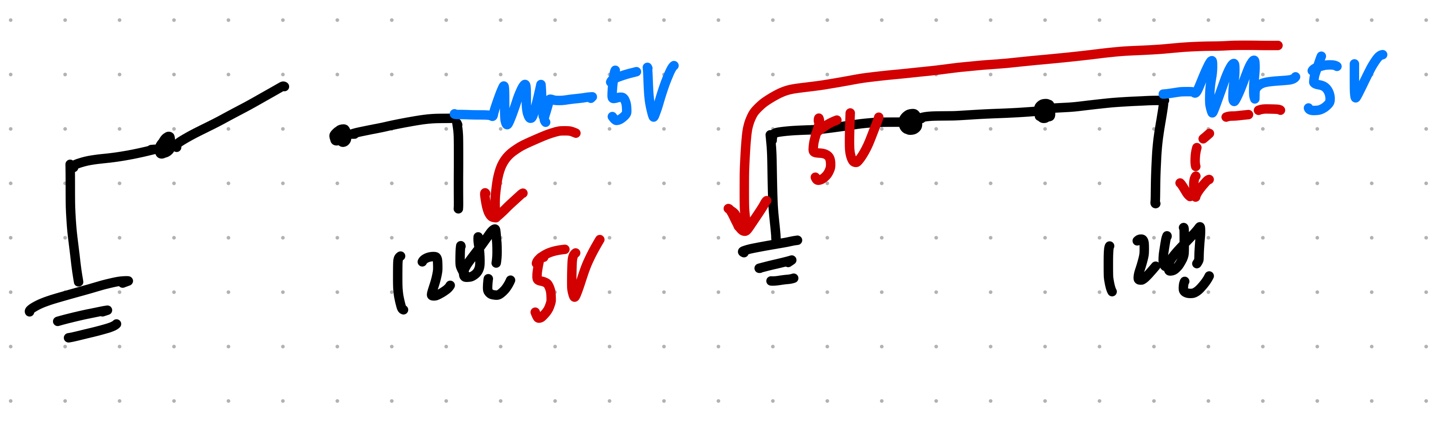 5V
12번 5V
5V
5V
12번